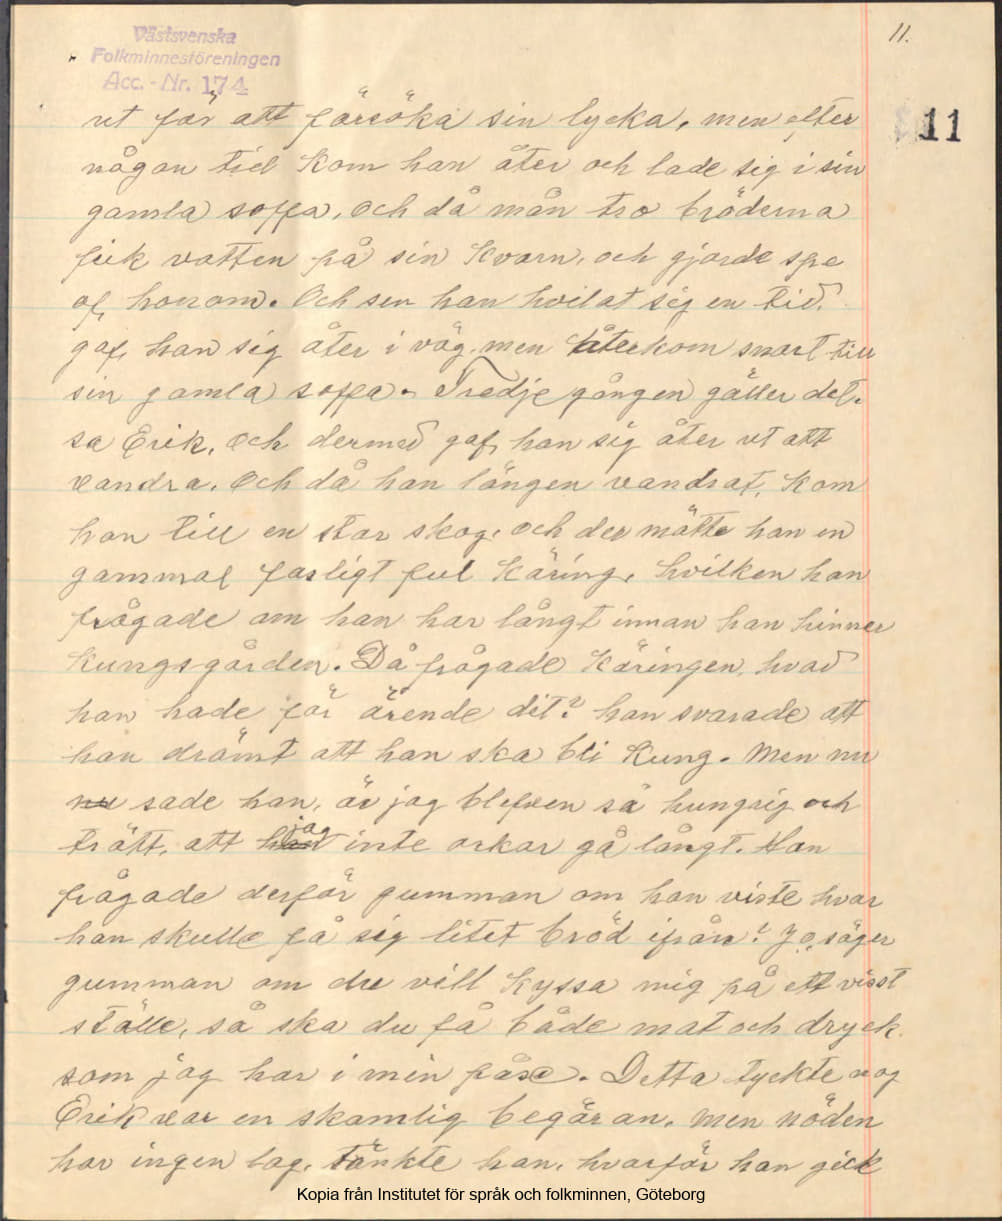 11.
Västsvenska
Folkminnesföreningen
Acc. - Nr. 174
11
ut för att försöka sin lycka, men efter
någon tid kom han åter och lade sig i sin
gamla soffa, och då mån tro bröderna
fick vatten på sin kvarn, och gjorde spe
af honom. Och sen han hvilat sig en tid,
gaf han sig åter i väg, men återkom snart till
sin gamla soffa. Tredje gången gäller det,
sa Erik, och dermed gaf han sig åter ut att
vandra. Och då han längen vandrat, kom
han till en stor skog, och der mötte han en
gammal fasligt ful käring, hvilken han
frågade om han har långt innan han hinner
kungsgården. Då frågade käringen, hvad
han hade för ärende dit? han svarade att
han drömt att han ska bli kung. Men nu
nu sade han, är jag blefven så hungrig och
trött, att han jag inte orkar gå långt. Han
frågade derför gumman om hon viste hvar
han skulle få sig litet bröd ifrån? Jo, säger
gumman om du vill kyssa mig på ett visst
ställe, så ska du få både mat och dryck
som jag har i min påse. Detta tyckte nog
Erik var en skamlig begäran, men nöden
har ingen lag, tänkte han, hvarför han gick
Kopia från Institutet för språk och folkminnen, Göteborg